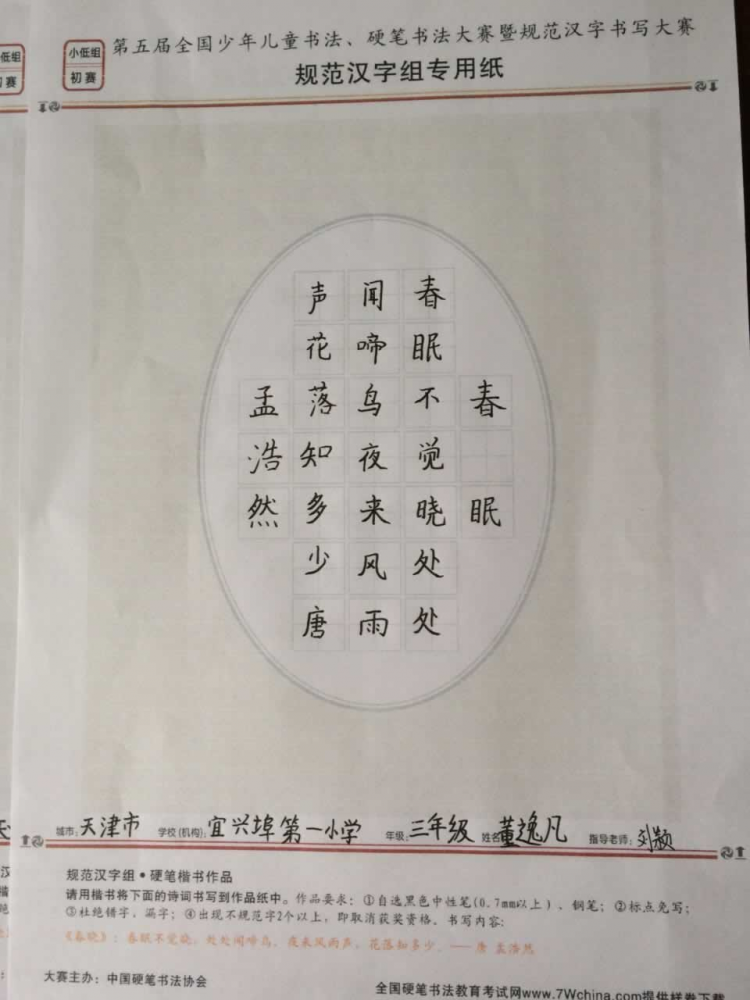 小低组
初赛
第五届全国少年儿童书法、硬笔书法大赛暨规范汉字书写大赛
规范汉字组专用纸
春眠
春眠不觉晓处处
闻啼鸟夜来风雨
声花落知多少唐
孟浩然
城市:天津市 学校(机构):宜兴埠第一小学 年级:三年级 姓名:董逸凡 指导老师:刘颖
规范汉字组·硬笔楷书作品
请用楷书将下面的诗词书写到作品纸中。作品要求：①自选黑色中性笔(0.7mm以上)、钢笔；②标点免写；
③杜绝错字，漏字；④出现不规范字2个以上，即取消获奖资格。书写内容：
《春晓》：春眠不觉晓，处处闻啼鸟，夜来风雨声，花落知多少。——唐 孟浩然
大赛主办：中国硬笔书法协会
全国硬笔书法教育考试网www.7Wchina.com提供样卷下载